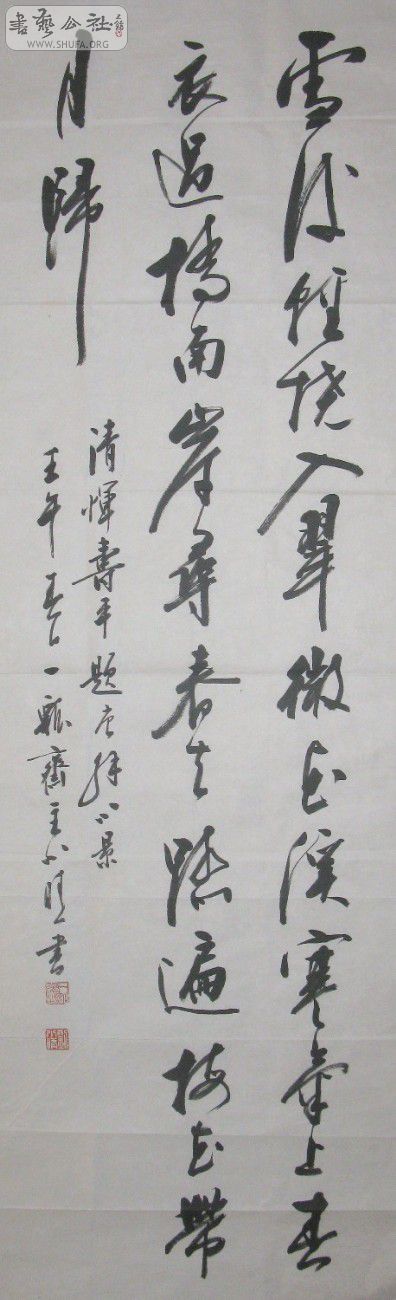 書藝公社
WWW.SHUFA.ORG
雪後輕橈入翠微花溪寒氣上春
衣過橋南岸尋春去踏遍梅花帶
月歸
清惲壽平題唐解八景
壬午春一瓢齋主小明書